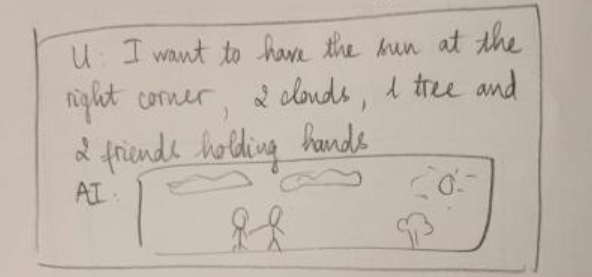 U: I want to have the sun at the
right corner, 2 clouds, 1 tree and
2 friends holding hands
AI: